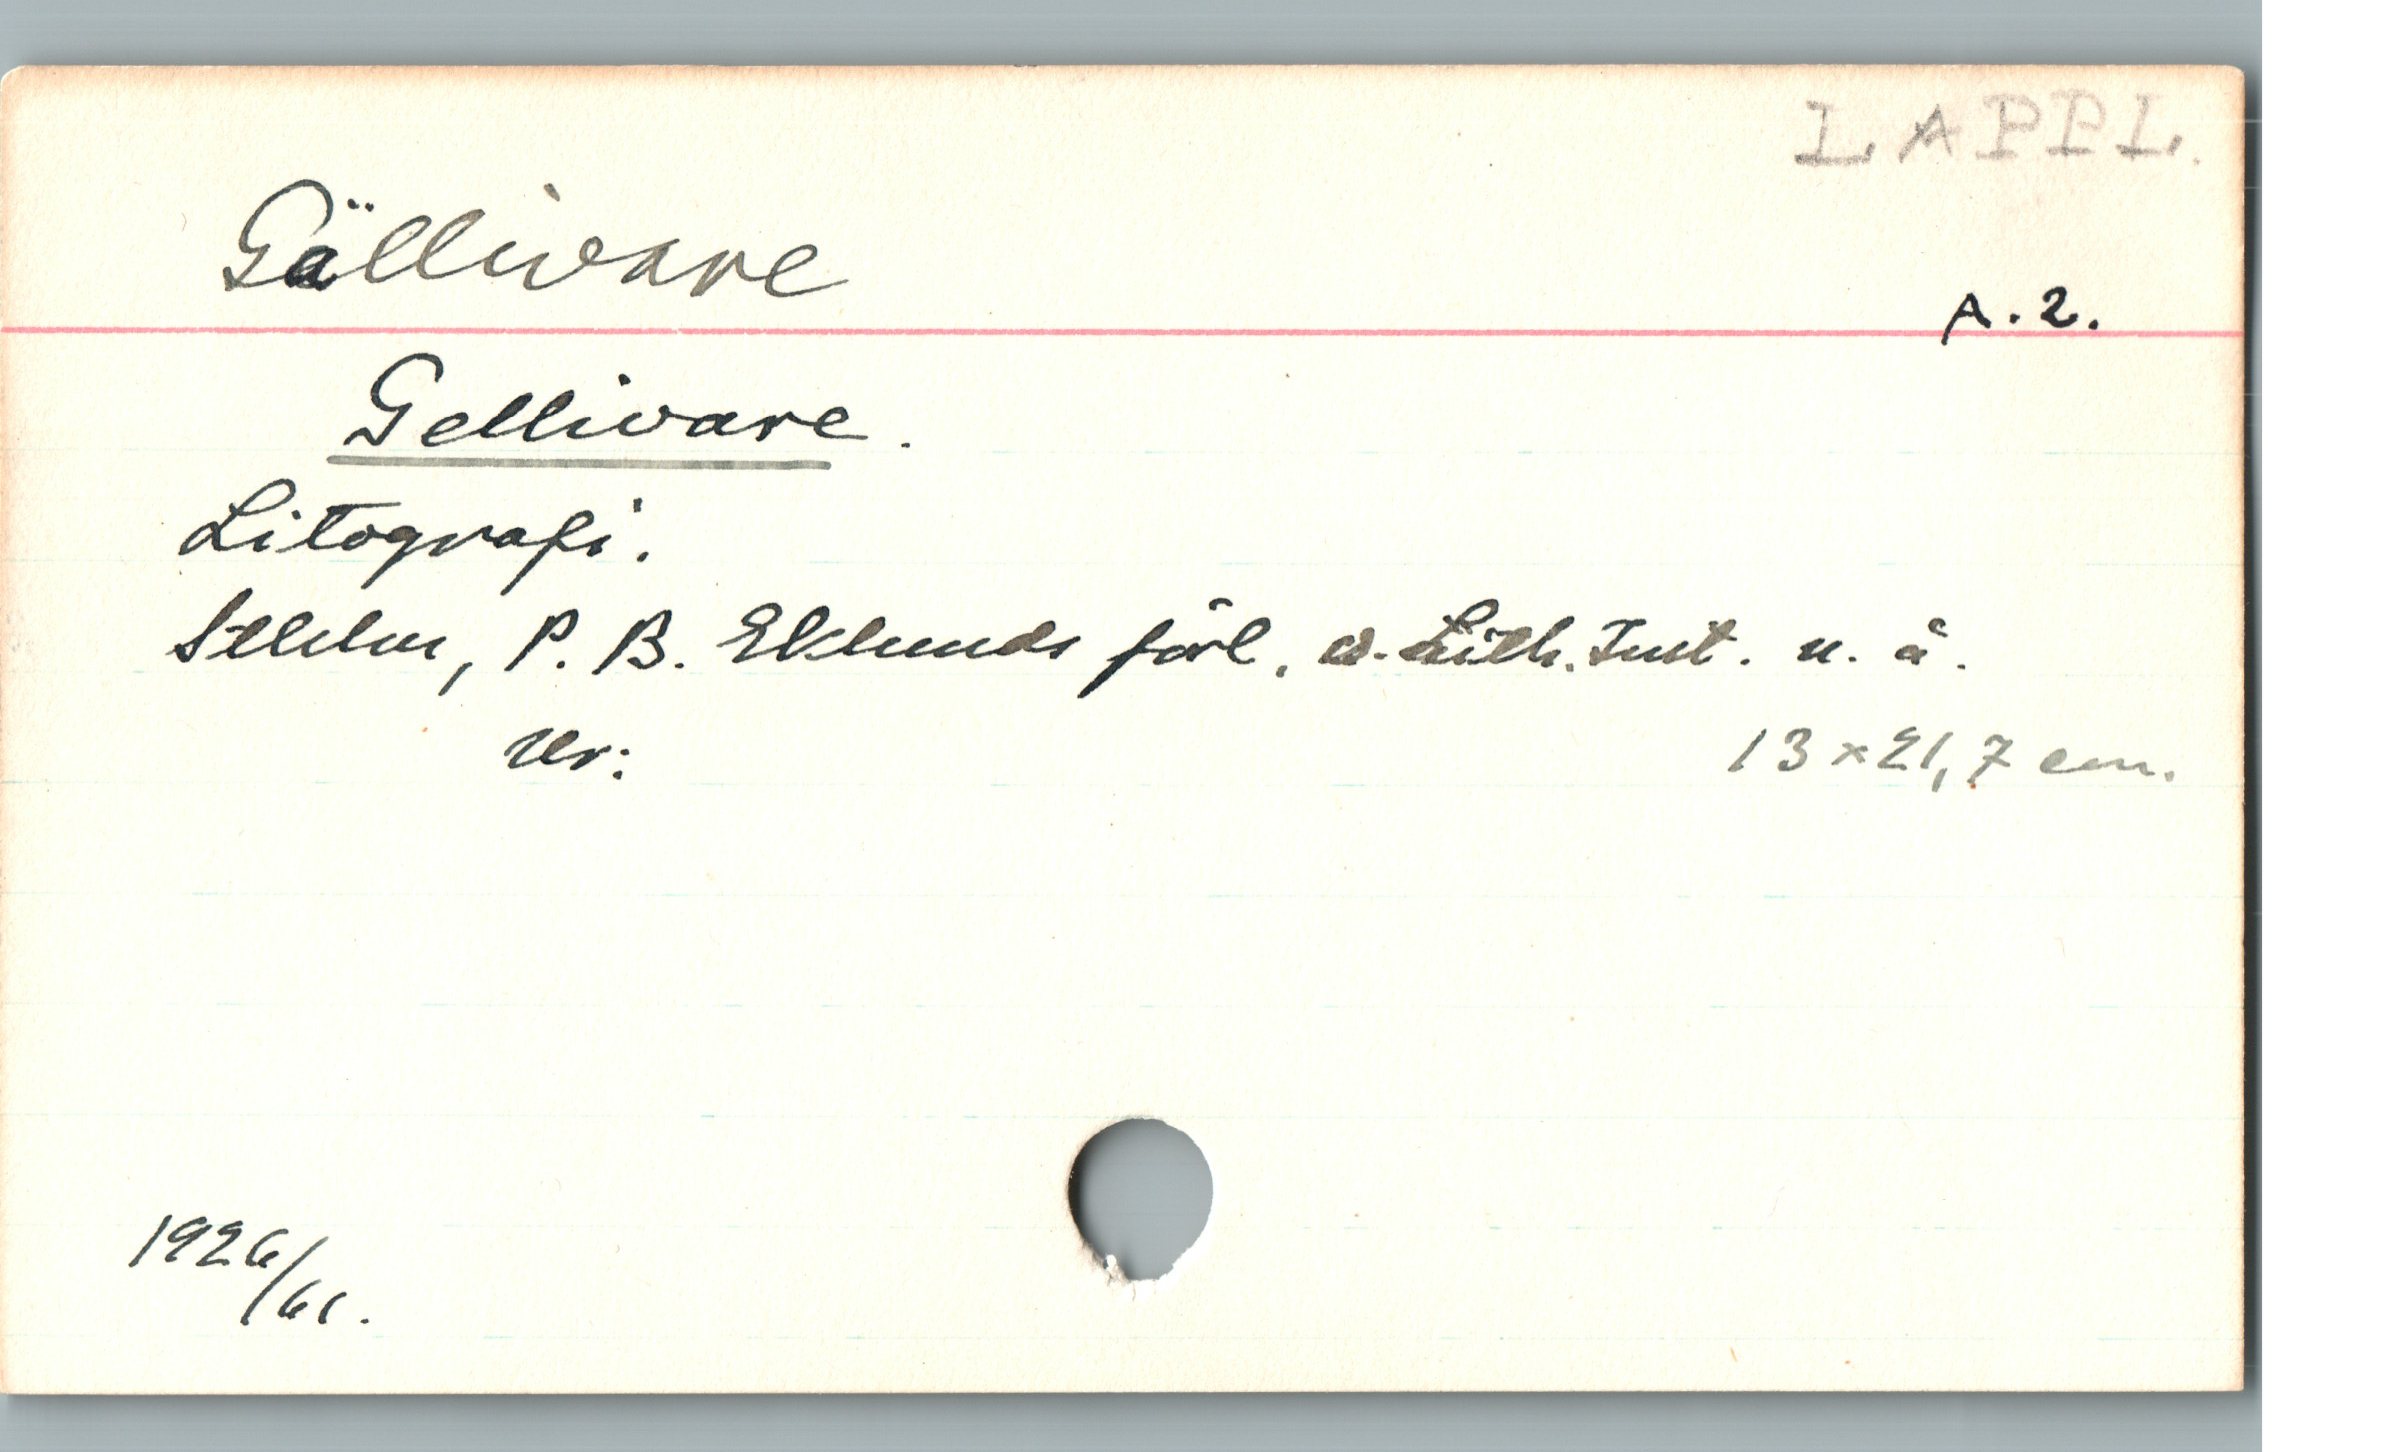 LAPPL.
Gällivare
A. 2.
Gellivare.
Litografi.
Sthlm, P. B. Eklunds förl. o. Lith. Inst. u. å.
Ur:
13 x 21,7 cm.
1926/61.